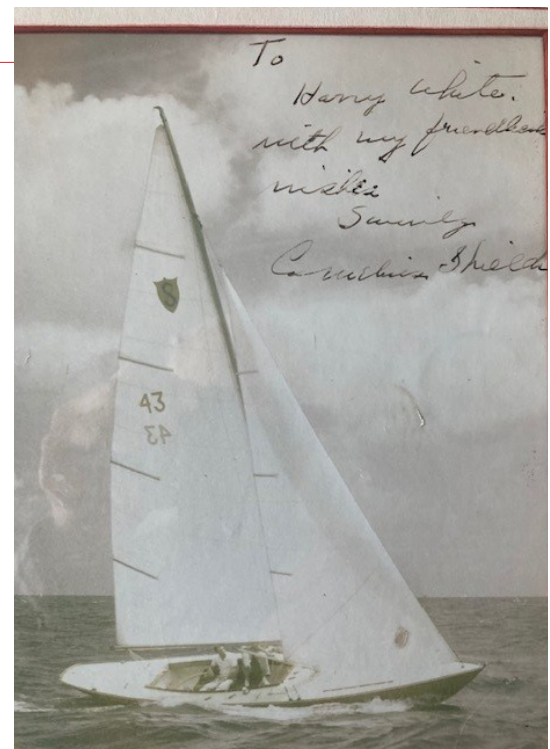 To
Harry White.
with my friendliest
wishes
Sincerely
Cornelius Shields
S
43
43